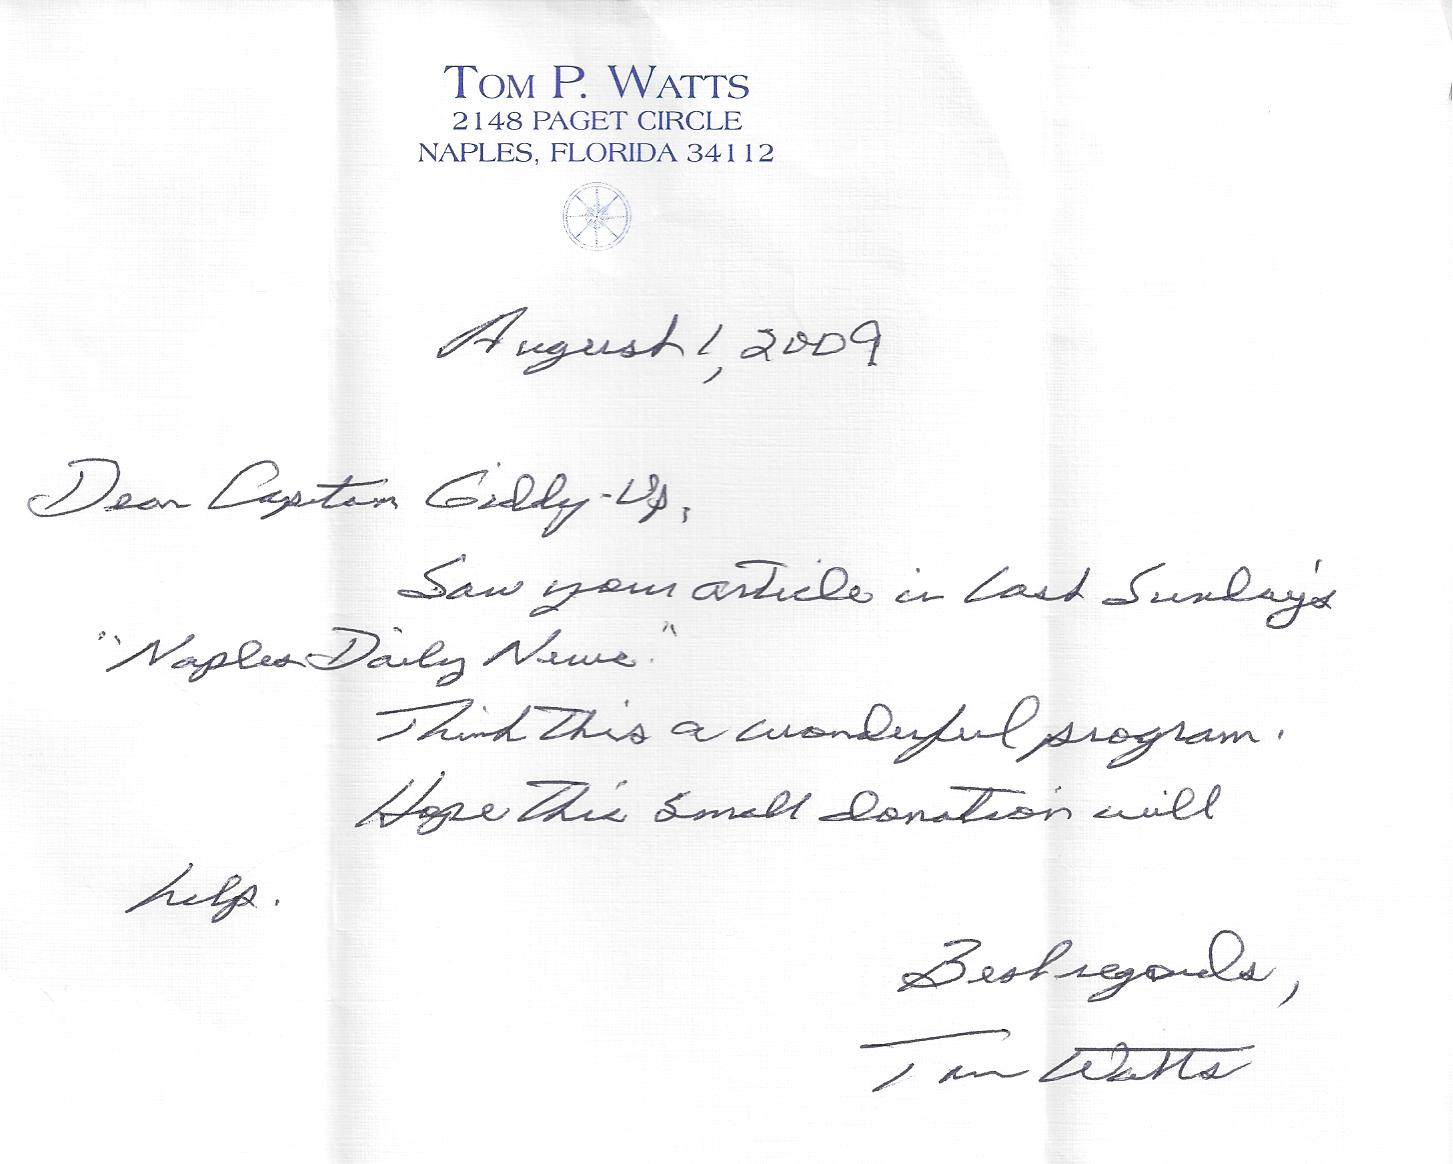 TOM P. WATTS
2148 PAGET CIRCLE
NAPLES, FLORIDA 34112
August 1, 2009
Dear Captain Giddy-Up,
Saw your article in Last Sunday's
"Naples Daily News."
Think this a wonderful program.
Hope this small donation will
help.
Best regards,
Tom Watts